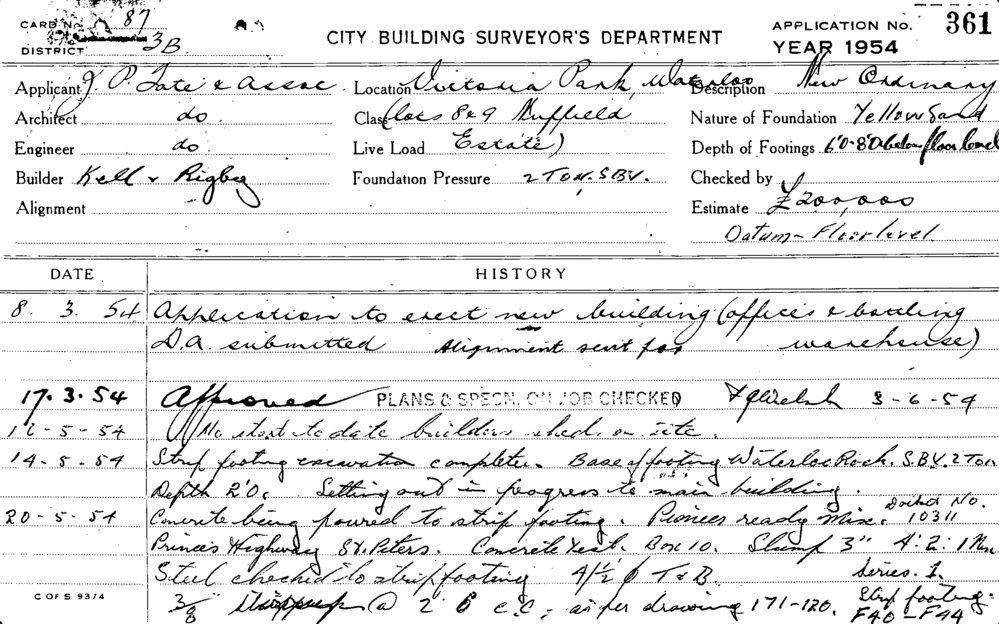 CARD No. 87
DISTRICT 3B
CITY BUILDING SURVEYOR'S DEPARTMENT
APPLICATION No. 361
YEAR 1954
Applicant J. P. Tate & Assoc Location Victoria Park, Waterloo Description New Ordinary
Architect do. Class (locs 8 & 9 Nuffield Nature of Foundation Yellow Sand
Engineer do Live Load Estate) Depth of Footings 6'0-8'0 below floor level
Builder Kell & Rigby Foundation Pressure 2 TON. S.B.V. Checked by
Alignment Estimate £200,000
Datum - Floor level.
DATE HISTORY
8. 3. 54 Application to erect new building (offices & bottling
D.A. submitted Alignment sent for warehouse)
17.3.54 Approved PLANS & SPECN. ON JOB CHECKED 3-6-54
12-5-54 No start to date builders sheds on site.
14-5-54 Strip footing excavation complete. Base of footing Waterloo Rock. S.B.V. 2 Ton
Depth 2'0. Setting out in progress to main building.
20-5-54 Concrete being poured to strip footing. Pioneer ready Mix. Docket No. 10311
Princes Highway St. Peters. Concrete test. Box 10. Slump 3" 4:2:1 Mix
Steel checked to strip footing 4/½ ϕ T & B. Series. 1.
3/8 @ 2 6 c.c. as per drawing 171-120. Strip footing.
C OF S 93/4 F40-F44